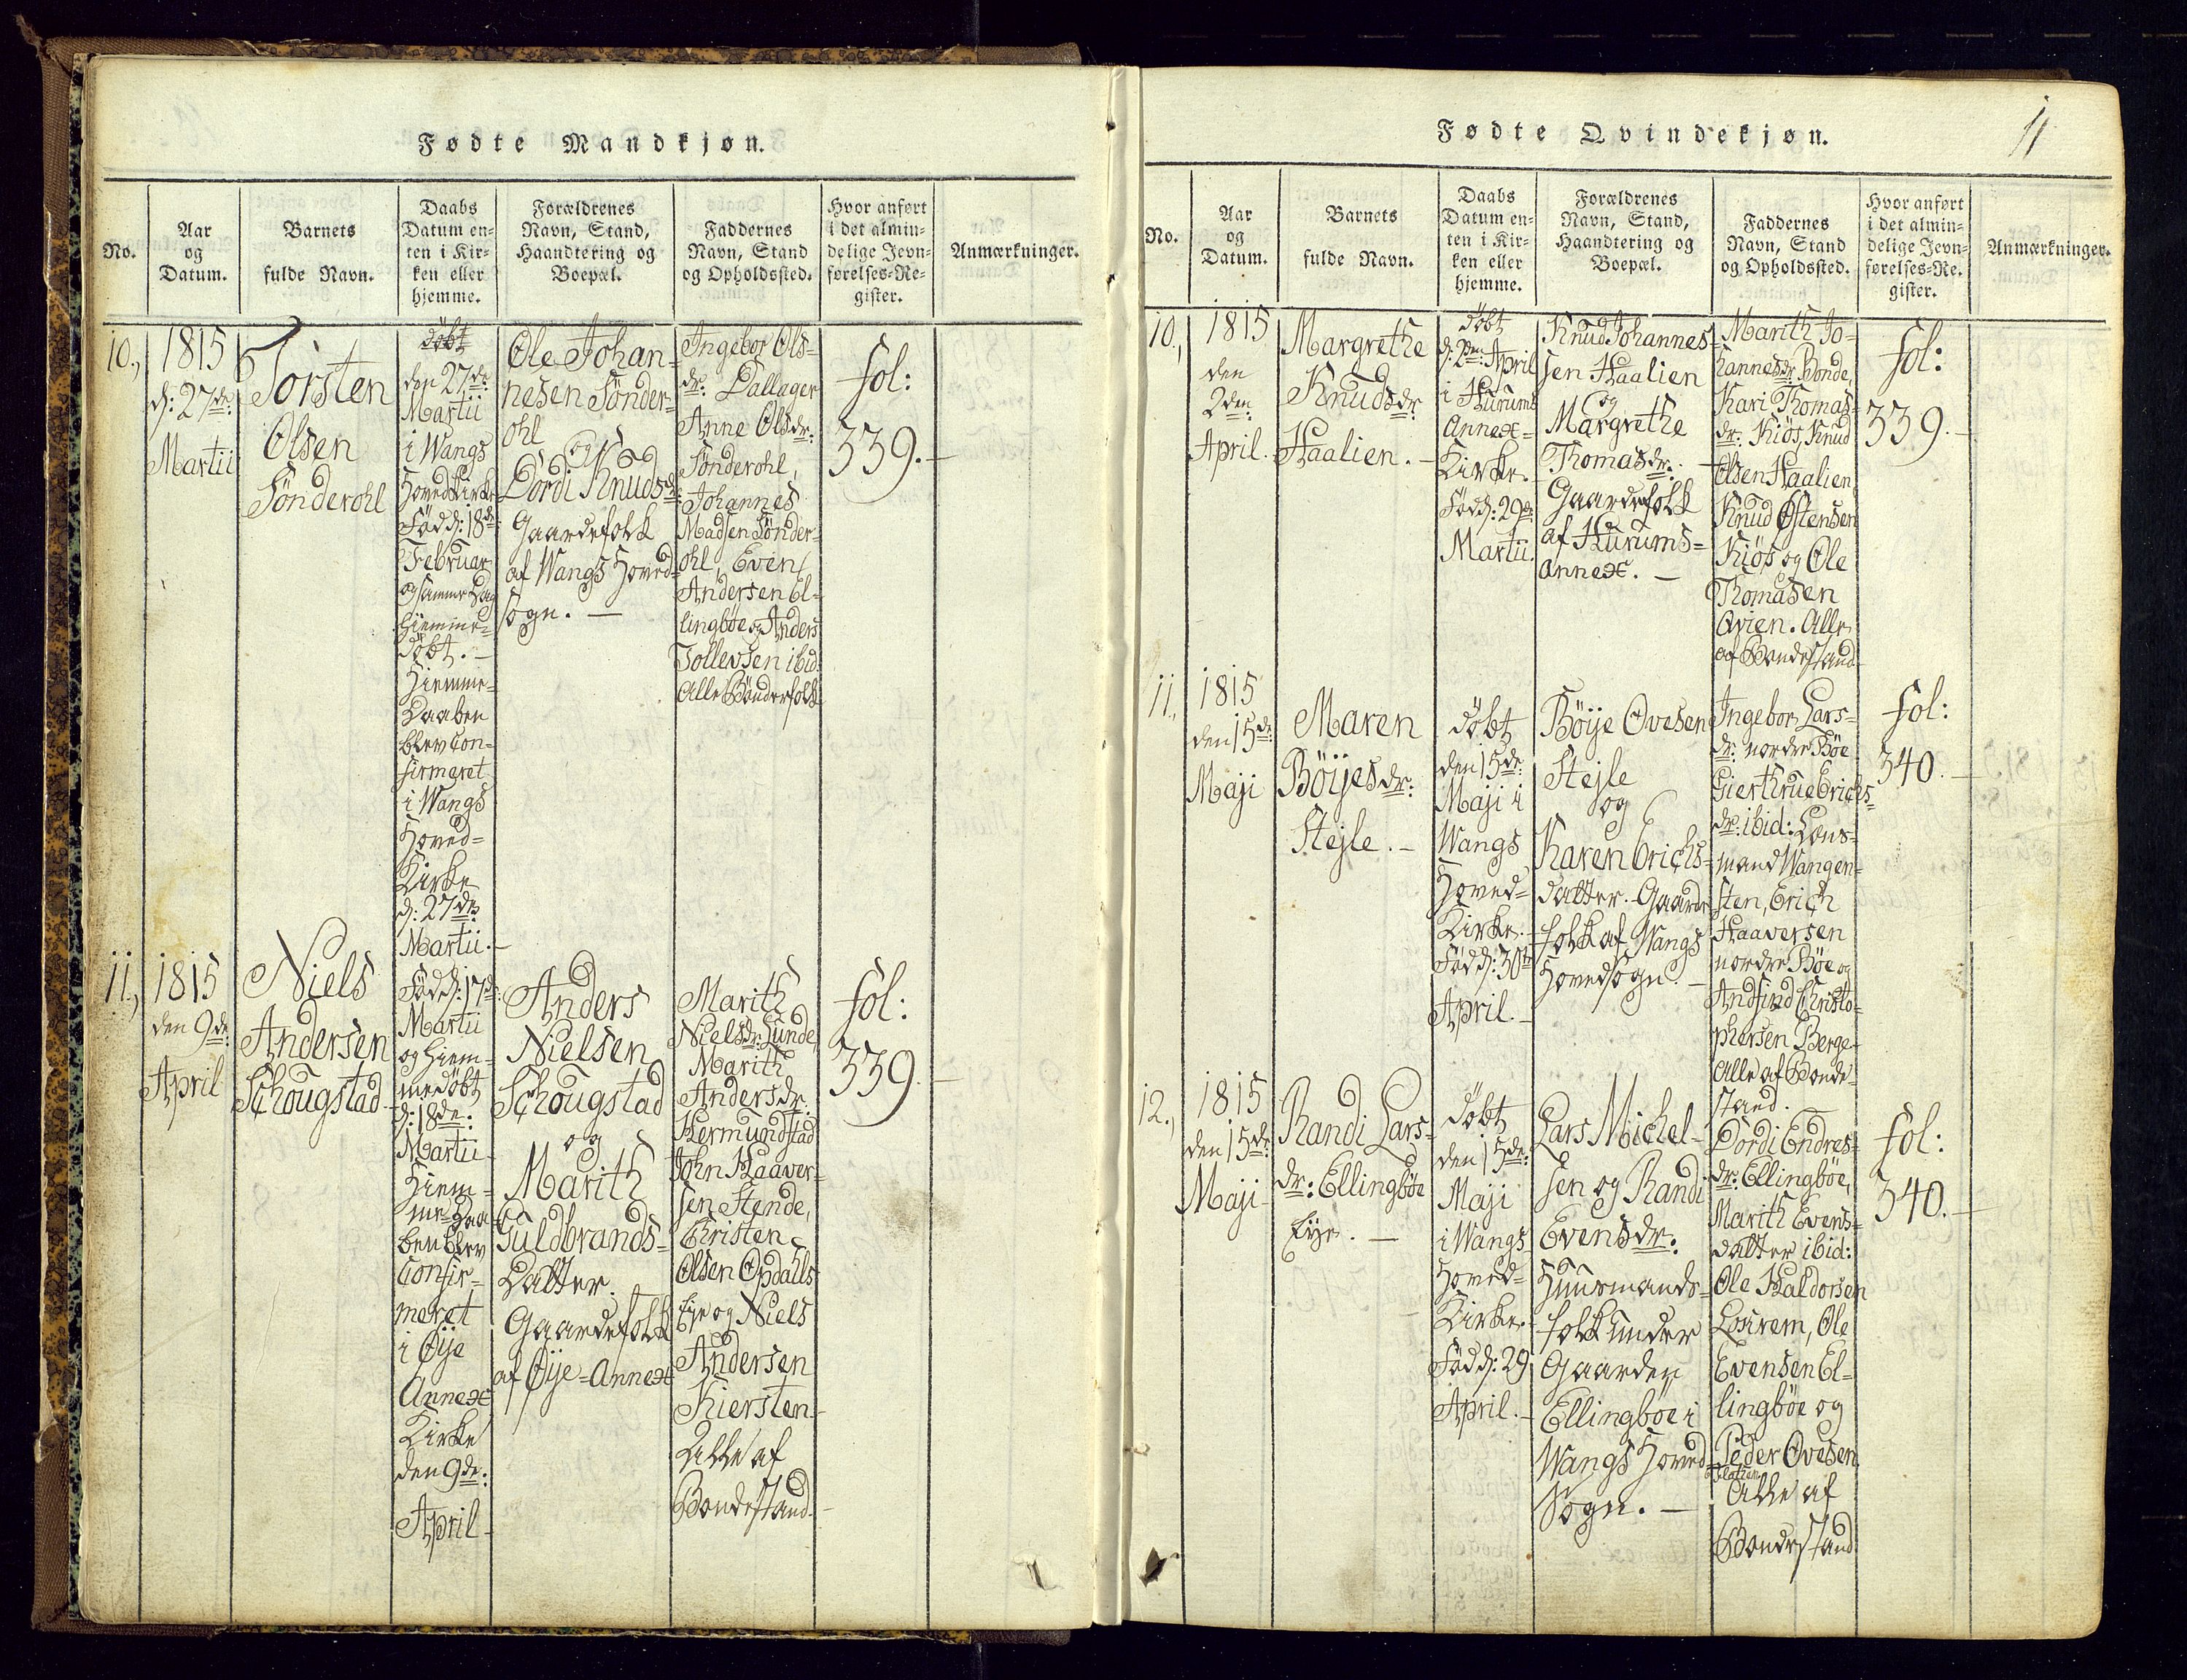 Fødte Mandkjøn.
No.
Aar
og
Datum.
Barnets
fulde Navn.
Daabs
Datum en-
ten i Kir-
ken eller
hjemme.
Forældrenes
Navn, Stand,
Haandtering og
Boepæl.
Faddernes
Navn, Stand
og Opholdssted.
Hvor anført
i det almin-
delige Jevn-
førelses-Re-
gister.
Anmærkninger.
10.,
1815
d: 27de
Martii
Torsten
Olsen
Sönderohl
döbt
den 27de:
Martii
i Wangs
Hovedkirke
Född: 18de
Februar
og samme Dag
hiemme-
döbt. —
Hiemme-
Daaben
blev Con-
firmeret
i Wangs
Hoved-
Kirke
d: 27de
Martii. —
Ole Johan-
nesen Sönder-
ohl
og
Dordi Knudsdr:
Gaardefolk
af Wangs Hoved-
sogn. —
Ingebor Ols-
dr: Dallager
Anne Olsdr:
Sönderohl,
Johannes
Madsen Sönder-
ohl, Even
Andersen El-
lingböe og Anders
Tollevsen ibid:
Alle Bönderfolk
fol:
339. —
11.,
1815
den 9de
April
Niels
Andersen
Schougstad
Född: 17de:
Martii
og hiem-
medöbt
d: 18de:
Martii
Hiem-
me-Daa-
ben blev
Confir-
meret
i Öije
Annex
Kirke
den 9de:
April
Anders
Nielsen
Schougstad
og
Marith
Guldbrands-
Datter.
Gaardefolk
af Öije-Annex
Marith
Nielsdr: Lunde,
Marith
Andersdr:
Hermundstad
John Haaver-
sen Stende,
Christen
Olsen Opdalls
Eye og Niels
Andersen
Kiersten
Alle af
Bondestand.
fol:
339. —
Fødte Qvindekjøn.
11
No.
Aar
og
Datum.
Barnets
fulde Navn.
Daabs
Datum en-
ten i Kir-
ken eller
hjemme.
Forældrenes
Navn, Stand,
Haandtering og
Boepæl.
Faddernes
Navn, Stand
og Opholdssted.
Hvor anført
i det almin-
delige Jevn-
førelses-Re-
gister.
Anmærkninger.
10.,
1815
den
2den:
April.
Margrethe
Knudsdr
Haalien. —
döbt
d: 2den: April
i Hurums
Annex-
Kirke.
Född: 29de
Martii.
Knud Johannes-
sen Haalien
og
Margrethe
Thomasdr:
Gaardefolk
af Hurums-
Annex. —
Marith Jo-
hannesdr: Bonde,
Kari Thomas-
dr: Kiös, Knud
Olsen Haalien
Knud Östensen
Kiös og Ole
Thomasen
Qvien. Alle
af Bondestand
fol:
339. —
11.,
1815
den 15de:
Maji
Maren
Böijesdr:
Stejle. —
döbt
den 15de:
Maji i
Wangs
Hoved-
Kirke.
Född: 30te
April. —
Böije Ovesen
Stejle
og
Karen Erichs-
datter. Gaarde
folk af Wangs
Hovedsogn. —
Ingebor Lars-
dr: nordre Böe
Gierthrue Erichs-
dr: ibid: Lens-
mand Wangen-
sten, Erich
Haaversen
nordre Böe og
Andfind Christo-
phersen Berge
Alle af Bonde-
stand.
fol:
340. —
12.,
1815
den 15de
Maji
Randi Lars-
dr: Ellingböe
Eye. —
döbt
den 15de:
Maji
i Wangs
Hoved-
Kirke.
Född: 29
April. —
Lars Michel-
sen og Randi
Evensdr:
Huusmands-
folk under
Gaarden
Ellingböe i
Wangs Hoved-
Sogn. —
Dordi Endres-
dr: Ellingböe,
Marith Evens-
datter ibid:
Ole Haldorsen
Ole
Evensen El-
lingböe og
Peder Ovesen
Alle af
Bondestand
fol:
340. —